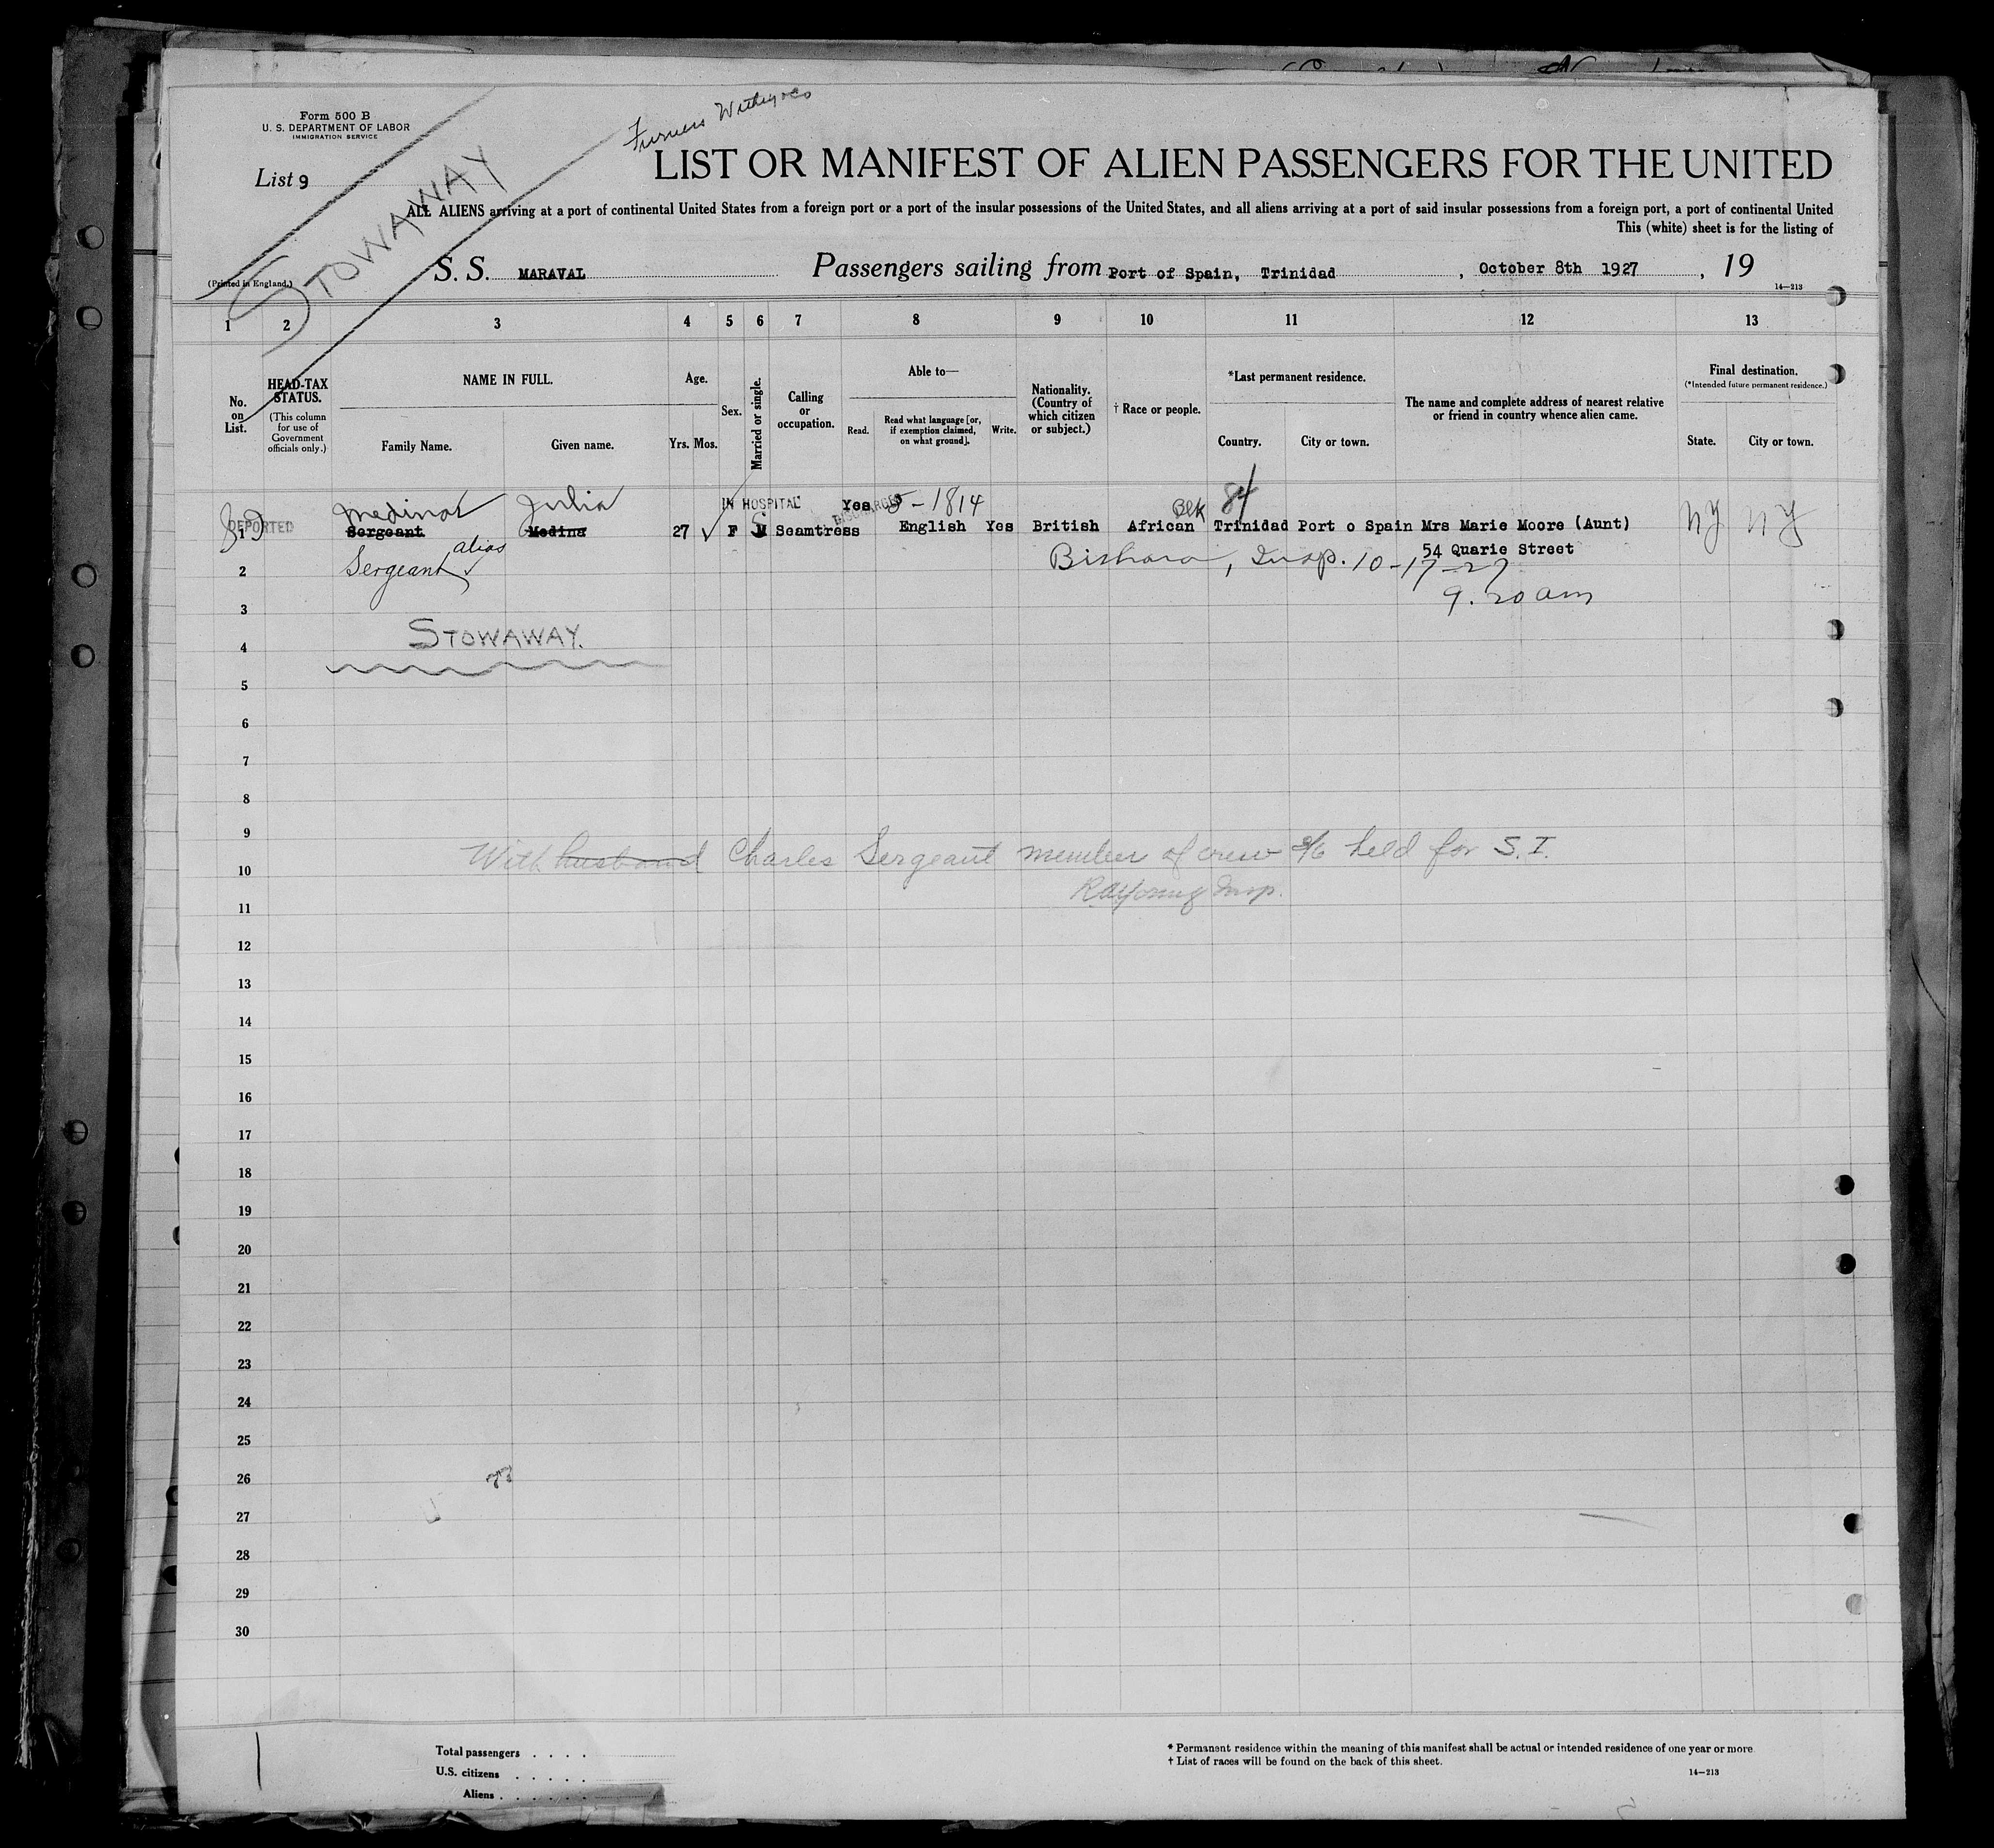 Form 500 B
U. S. DEPARTMENT OF LABOR
IMMIGRATION SERVICE
List 9
STOWAWAY
LIST OR MANIFEST OF ALIEN PASSENGERS FOR THE UNITED
ALL ALIENS arriving at a port of continental United States from a foreign port or a port of the insular possessions of the United States, and all aliens arriving at a port of said insular possessions from a foreign port, a port of continental United
This (white) sheet is for the listing of
(Printed in England.)
S. S. MARAVAL Passengers sailing from Port of Spain, Trinidad , October 8th 1927 , 19
14—213
1 2 3 4 5 6 7 8 9 10 11 12 13
No. on List.
HEAD-TAX STATUS.
(This column for use of Government officials only.)
NAME IN FULL.
Family Name. Given name.
Age.
Yrs. Mos.
Sex.
Married or single.
Calling or occupation.
Able to—
Read. Read what language [or, if exemption claimed, on what ground]. Write.
Nationality. (Country of which citizen or subject.)
† Race or people.
*Last permanent residence.
Country. City or town.
The name and complete address of nearest relative or friend in country whence alien came.
Final destination.
(*Intended future permanent residence.)
State. City or town.
Medina Julia IN HOSPITAL DISCHARGED Yes 5-1814 Blk 84
DEPORTED
1 Sergeant Medina 27 F M S Seamtress English Yes British African Trinidad Port o Spain Mrs Marie Moore (Aunt) NY NY
alias
54 Quarie Street
2 Sergeant , Insp. 10-17-27
9.20 am
3
STOWAWAY.
4
5
6
7
8
9
With husband Charles Sergeant member of crew held for S. I.
10
Insp.
11
12
13
14
15
16
17
18
19
20
21
22
23
24
25
26
27
28
29
30
Total passengers . . . .
U.S. citizens . . . . .
Aliens . . . . . .
* Permanent residence within the meaning of this manifest shall be actual or intended residence of one year or more.
† List of races will be found on the back of this sheet.
14—213